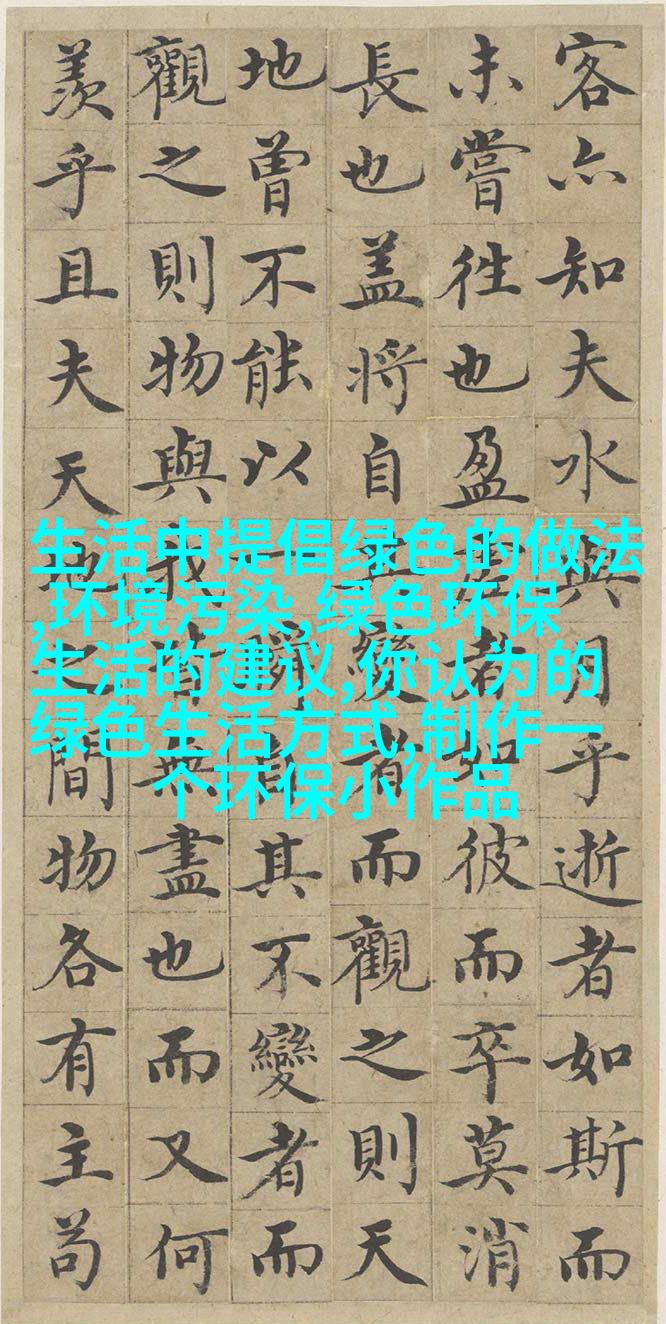 客亦知夫水與月乎逝者如斯而
未嘗往也盈虛者如彼而卒莫消
長也盖將自其變者而觀之則天
地曾不能以一瞬自其不變者而
觀之則物與我皆無盡也而又何
羨乎且夫天地之間物各有主苟
生活中提倡绿色的做法
,环境污染,绿色环保
生活的建议,你认为的
绿色生活方式,制作一
个环保小作品